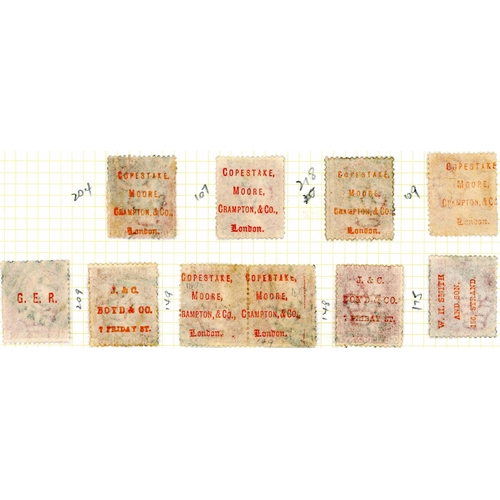 204
COPESTAKE,
MOORE,
CRAMPTON, & Co.,
London.
107
COPESTAKE,
MOORE,
CRAMPTON, & Co.,
London.
218
COPESTAKE,
MOORE,
CRAMPTON, & Co.,
London.
109
COPESTAKE,
MOORE,
CRAMPTON, & Co.
London.
G. E. R.
209
J. & C.
BOYD & CO.
7 FRIDAY ST.
149
COPESTAKE, COPESTAKE,
MOORE, MOORE,
CRAMPTON, & Co., CRAMPTON, & Co.,
London. London.
148
J. & C.
BOYD & CO.
7 FRIDAY ST.
W. H. SMITH
AND SON.
STRAND.